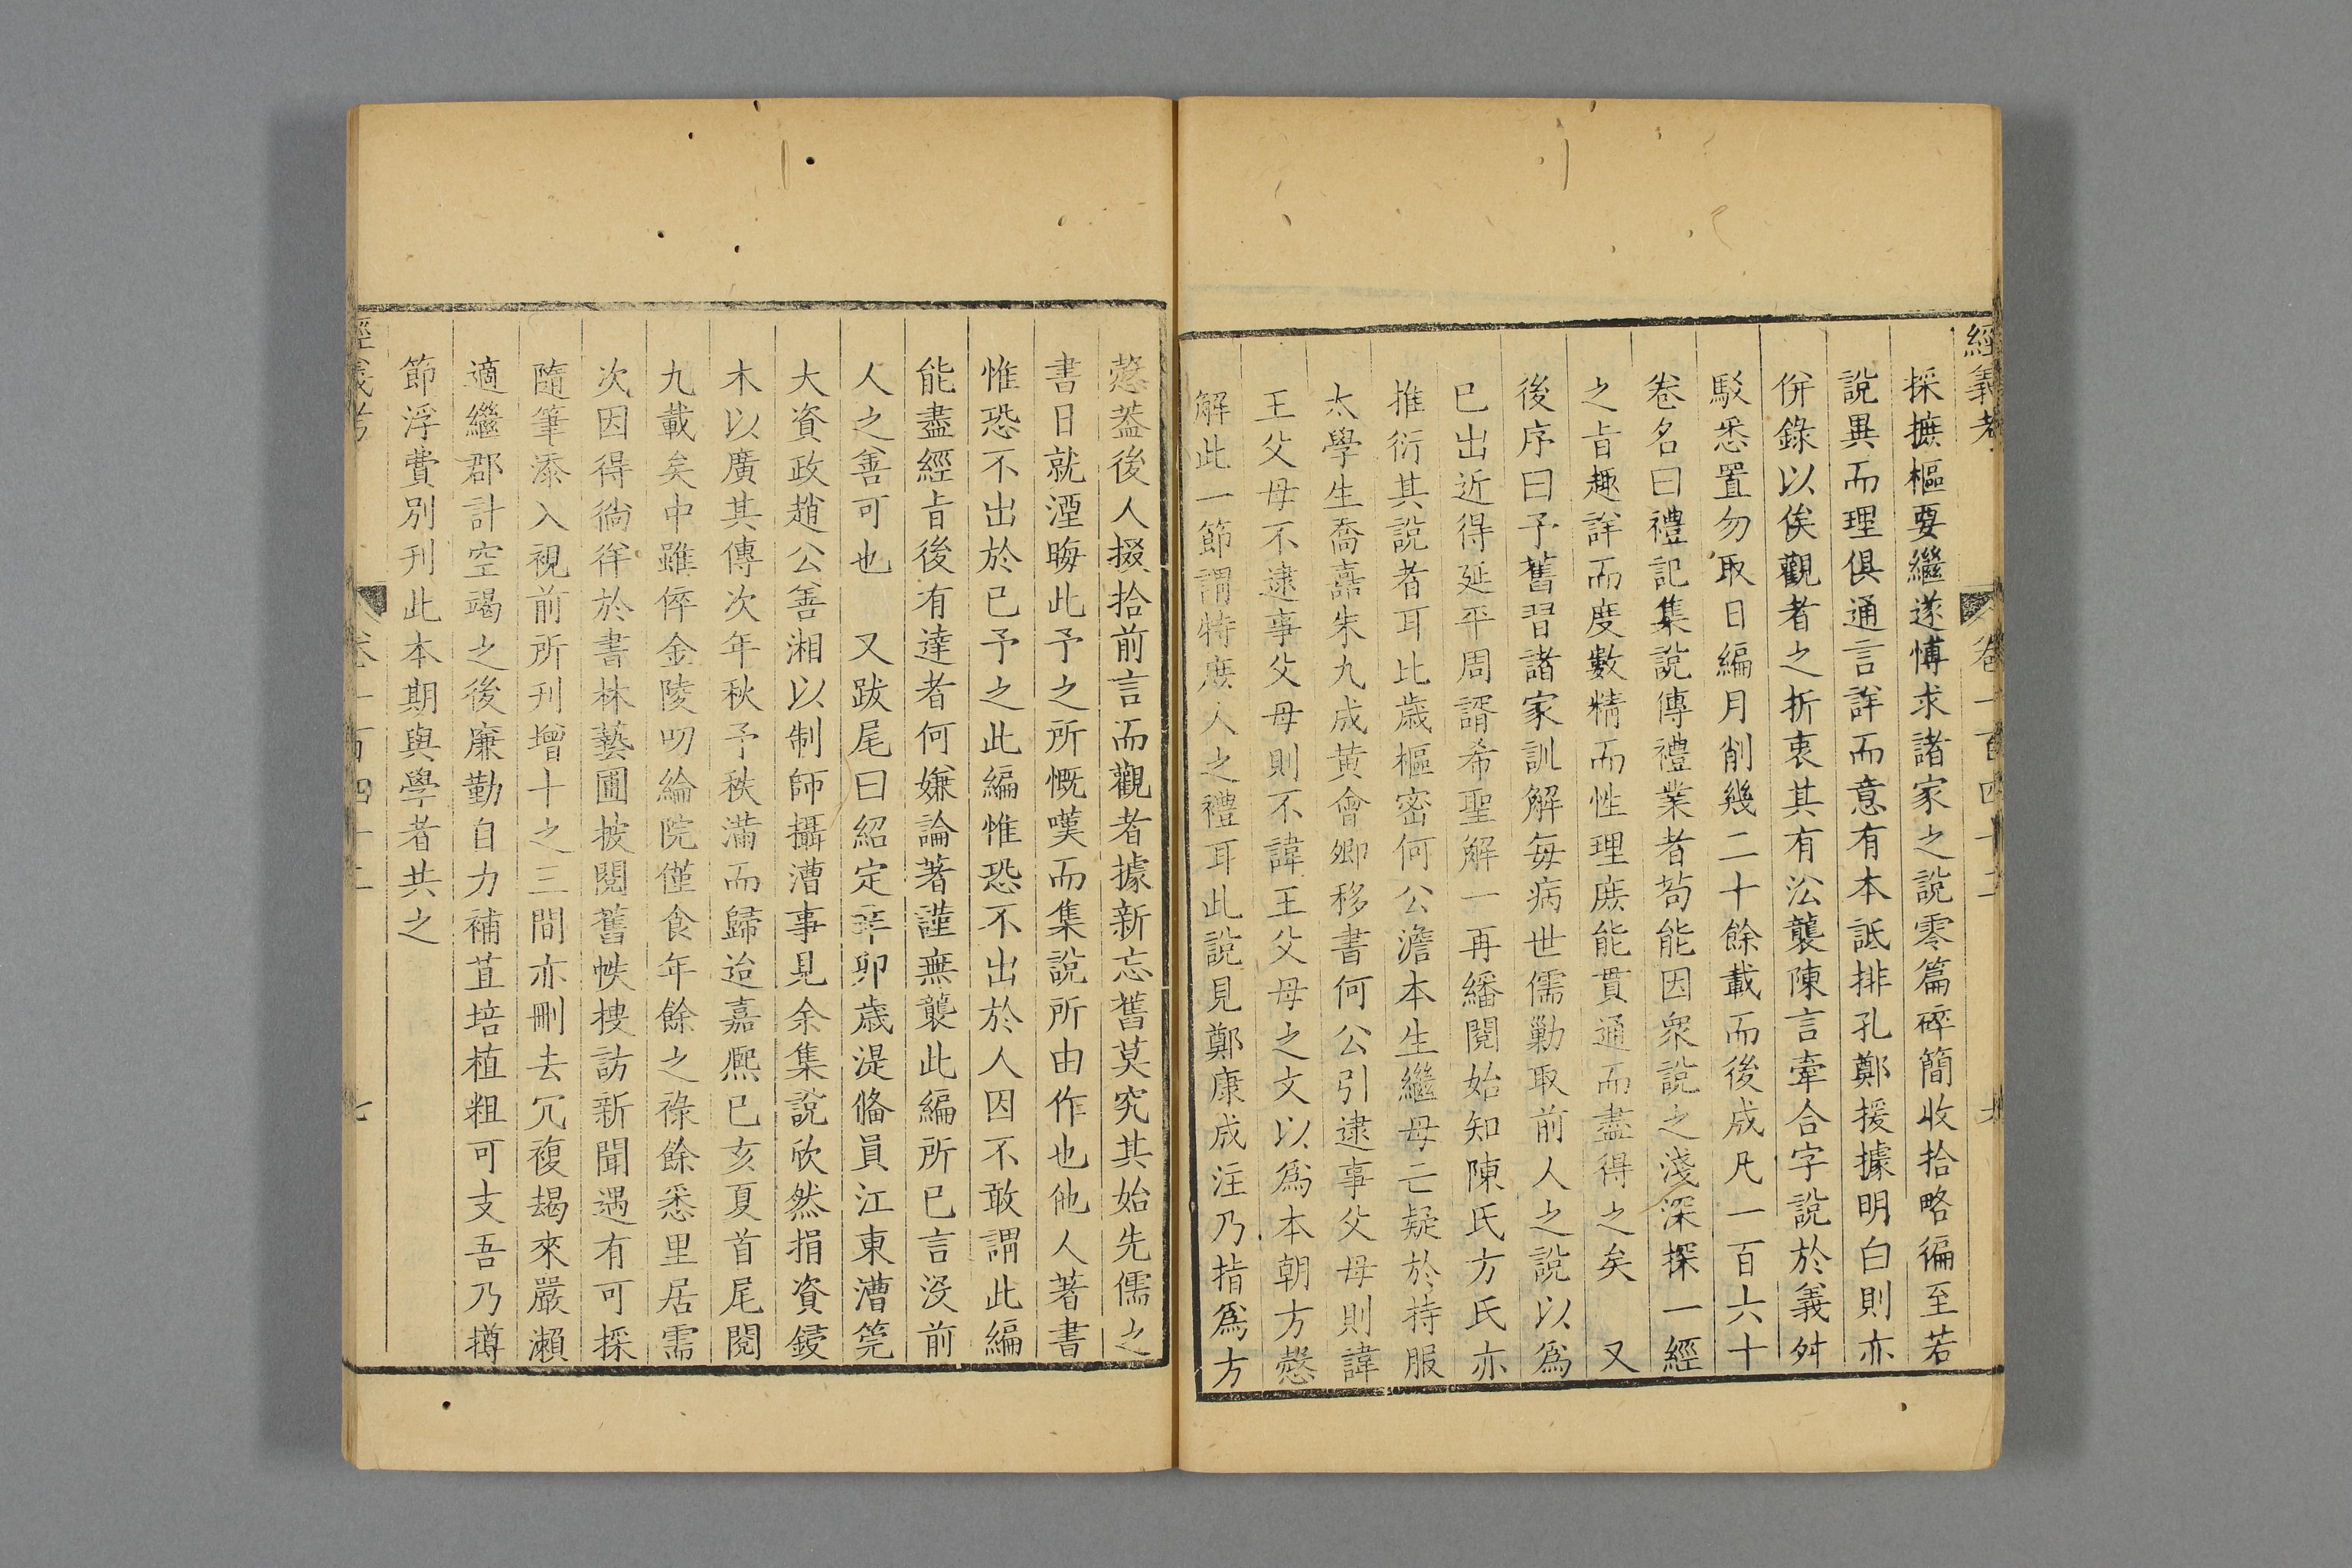 經義考 卷一百四十二
採摭樞要繼遂慱求諸家之說零篇碎簡收拾略徧至若
說異而理俱通言詳而意有本詆排孔鄭援據明白則亦
併錄以俟觀者之折衷其有㳂襲陳言牽合字說於義舛
駁悉置勿取日編月削幾二十餘載而後成凡一百六十
卷名曰禮記集說傳禮業者苟能因衆說之淺深探一經
之旨趣詳而度數精而性理庶能貫通而盡得之矣 又
後序曰予舊習諸家訓解每病世儒勦取前人之說以爲
已出近得延平周諝希聖解一再繙閱始知陳氏方氏亦
推衍其說者耳比歲樞密何公澹本生繼母亡疑於持服
太學生喬嚞朱九成黄會卿移書何公引逮事父母則諱
王父母不逮事父母則不諱王父母之文以爲本朝方慤
解此一節謂特庶人之禮耳此說見鄭康成注乃指爲方
慤葢後人掇拾前言而觀者據新忘舊莫究其始先儒之
書日就湮晦此予之所慨嘆而集說所由作也他人著書
惟恐不出於已予之此編惟恐不出於人因不敢謂此編
能盡經旨後有達者何嫌論著謹無襲此編所已言沒前
人之善可也 又跋尾曰紹定辛卯歲湜偹員江東漕筦
大資政趙公善湘以制師攝漕事見余集說欣然捐資鋟
木以廣其傳次年秋予秩滿而歸迨嘉熈已亥夏首尾閱
九載矣中雖倅金陵叨綸院僅食年餘之祿餘悉里居需
次因得徜徉於書林藝圃披閱舊帙搜訪新聞遇有可採
隨筆添入視前所刊增十之三間亦刪去冗複朅來嚴瀨
適繼郡計空竭之後廉勤自力補苴培植粗可支吾乃撙
節浮費別刊此本期與學者共之
經義考 卷一百四十二 七